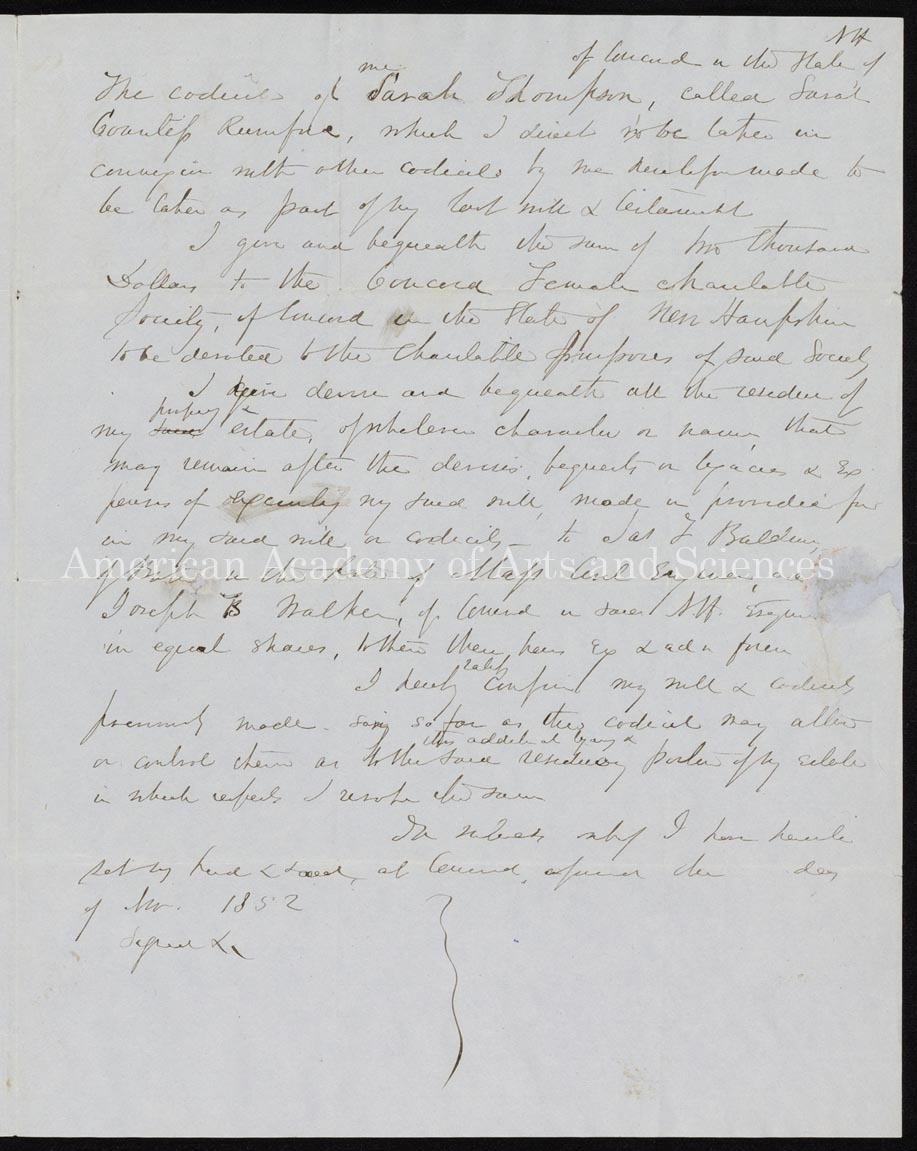 NH
of Concord in the State of
me
The codicil of Sarah Thompson, called Sarah
Countess Rumford, which I direct to be taken in
connexion with other codicils by me heretofore made to
be taken as part of my last will & testament
I give and bequeath the sum of two thousand
Dollars to the Concord Female Charitable
Society, of Concord in the State of New Hampshire
to be devoted to the Charitable purposes of said Society
I give devise and bequeath all the residue of
property &
my estate, of whatever character or name, that
may remain after the devises, bequests or legacies & Ex
penses of executing my said will, made or provided for
in my said will or codicils - to Jas F Baldwin,
American Academy of Arts and Sciences
of Boston in the State of Mass Civil Engineer, and
Joseph B Walker, of Concord in said NH. Esquire
in equal shares, to them their heirs Ex & ad
ratify
I hereby confirm my will & codicils
previously made so far as this codicil may alter
this additional legacy &
or control them as to the said residuary portion of my estate
in which respects I revoke the same
In witness whf I have hereunto
set my hand & seal, at Concord, the day
of Nov. 1852
Signed &